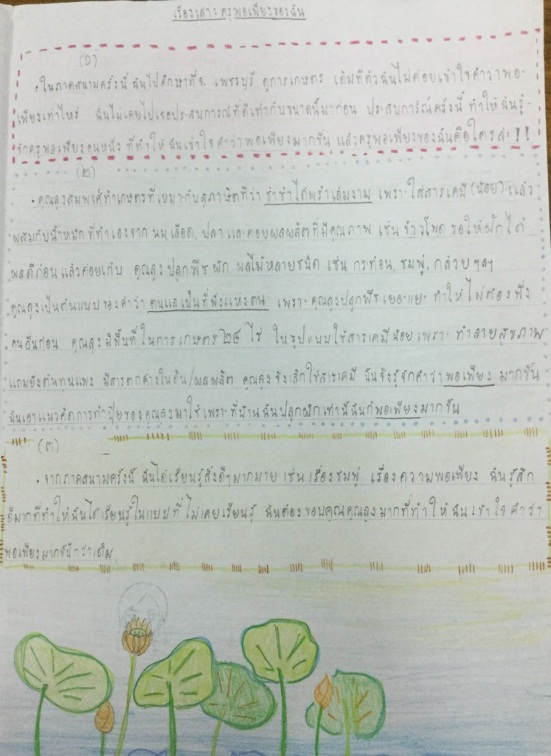 เรื่องเล่า: ครูพอเพียงของฉัน
(๑)
• ในภาคสนามครั้งนี้ ฉันไปศึกษาที่จ. เพชรบุรี ดูการเกษตร เดิมทีตัวฉันไม่ค่อยเข้าใจคำว่าพอ-
เพียงเท่าไหร่ ฉันไม่เคยไปเจอประสบการณ์ที่ดีเท่ากับขนาดนี้มาก่อน ประสบการ์ณครั้งนี้ ทำให้ฉันรู้-
จักครูพอเพียงคนหนึ่ง ที่ทำให้ฉันเข้าใจคำว่าพอเพียงมากขึ้น แล้วครูพอเพียงของฉันคือใครล่ะ!!
(๒)
• คุณลุงสมพงศ์ทำเกษตรที่เหมาะกับสุภาษิตที่ว่า ช้าช้าได้พร้าเล่มงาม เพราะใส่สารเคมี (น้อย) แล้ว
ผสมกับน้ำหมักที่ทำเองจาก นม, เลือด, ปลา และคอยผลผลิตที่มีคุณภาพ เช่น ข้าวโพด รอให้ฝักได้
ผลดีก่อนแล้วค่อยเก็บ คุณลุงปลูกพืช ผัก ผลไม้หลายชนิด เช่น กระท้อน, ชมพู่, กล้วย ฯลฯ
คุณลุงเป็นต้นแบบของคำว่า ตนแลเป็นที่พึ่งแห่งตน เพราะคุณลุงปลูกพืชเยอะแยะ ทำให้ไม่ต้องพึ่ง
คนอื่นก่อน คุณลุงมีพื้นที่ในการเกษตร ๒๕ ไร่ ในรูปแบบใช้สารเคมีน้อย เพราะทำลายสุขภาพ
แถมยังต้นทุนแพง มีสารตกค้างในดิน/ผลผลิต คุณลุงจึงเลิกใช้สารเคมี ฉันจึงรู้จักคำว่าพอเพียง มากขึ้น
ฉันเอาแนวคิดการทำปุ๋ยของคุณลุงมาใช้ เพราะที่บ้านฉันปลูกผัก เท่านี้ฉันก็พอเพียงมากขึ้น
(๓)
• จากภาคสนามครั้งนี้ ฉันได้เรียนรู้สิ่งดีๆมากมาย เช่น เรื่องชมพู่ เรื่องความพอเพียง ฉันรู้สึก
ดีมากที่ทำให้ฉันได้เรียนรู้ในแบบที่ไม่เคยเรียนรู้ ฉันต้องขอบคุณคุณลุงมากที่ทำให้ฉันเข้าใจคำว่า
พอเพียงมากขึ้นกว่าเดิม